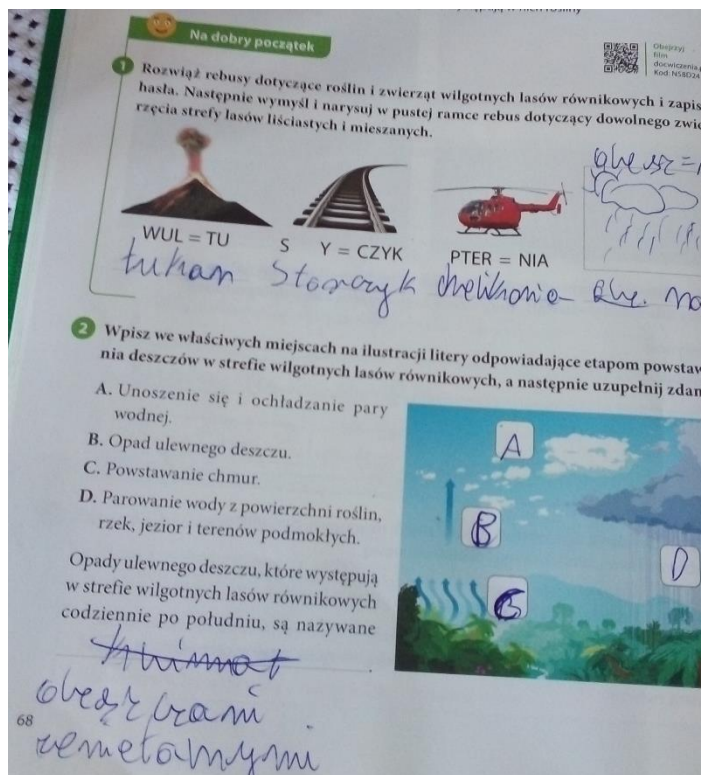 Na dobry początek
Obejrzyj
film
docwiczenia.
Kod: N58D24
1 Rozwiąż rebusy dotyczące roślin i zwierząt wilgotnych lasów równikowych i zapis
hasła. Następnie wymyśl i narysuj w pustej ramce rebus dotyczący dowolnego zwie
rzęcia strefy lasów liściastych i mieszanych.
WUL = TU
S
Y = CZYK
PTER = NIA
tukan
Storczyk
2 Wpisz we właściwych miejscach na ilustracji litery odpowiadające etapom powstaw
nia deszczów w strefie wilgotnych lasów równikowych, a następnie uzupełnij zdan
A. Unoszenie się i ochładzanie pary
wodnej.
B. Opad ulewnego deszczu.
C. Powstawanie chmur.
D. Parowanie wody z powierzchni roślin,
rzek, jezior i terenów podmokłych.
A
B
D
Opady ulewnego deszczu, które występują
w strefie wilgotnych lasów równikowych
codziennie po południu, są nazywane
68